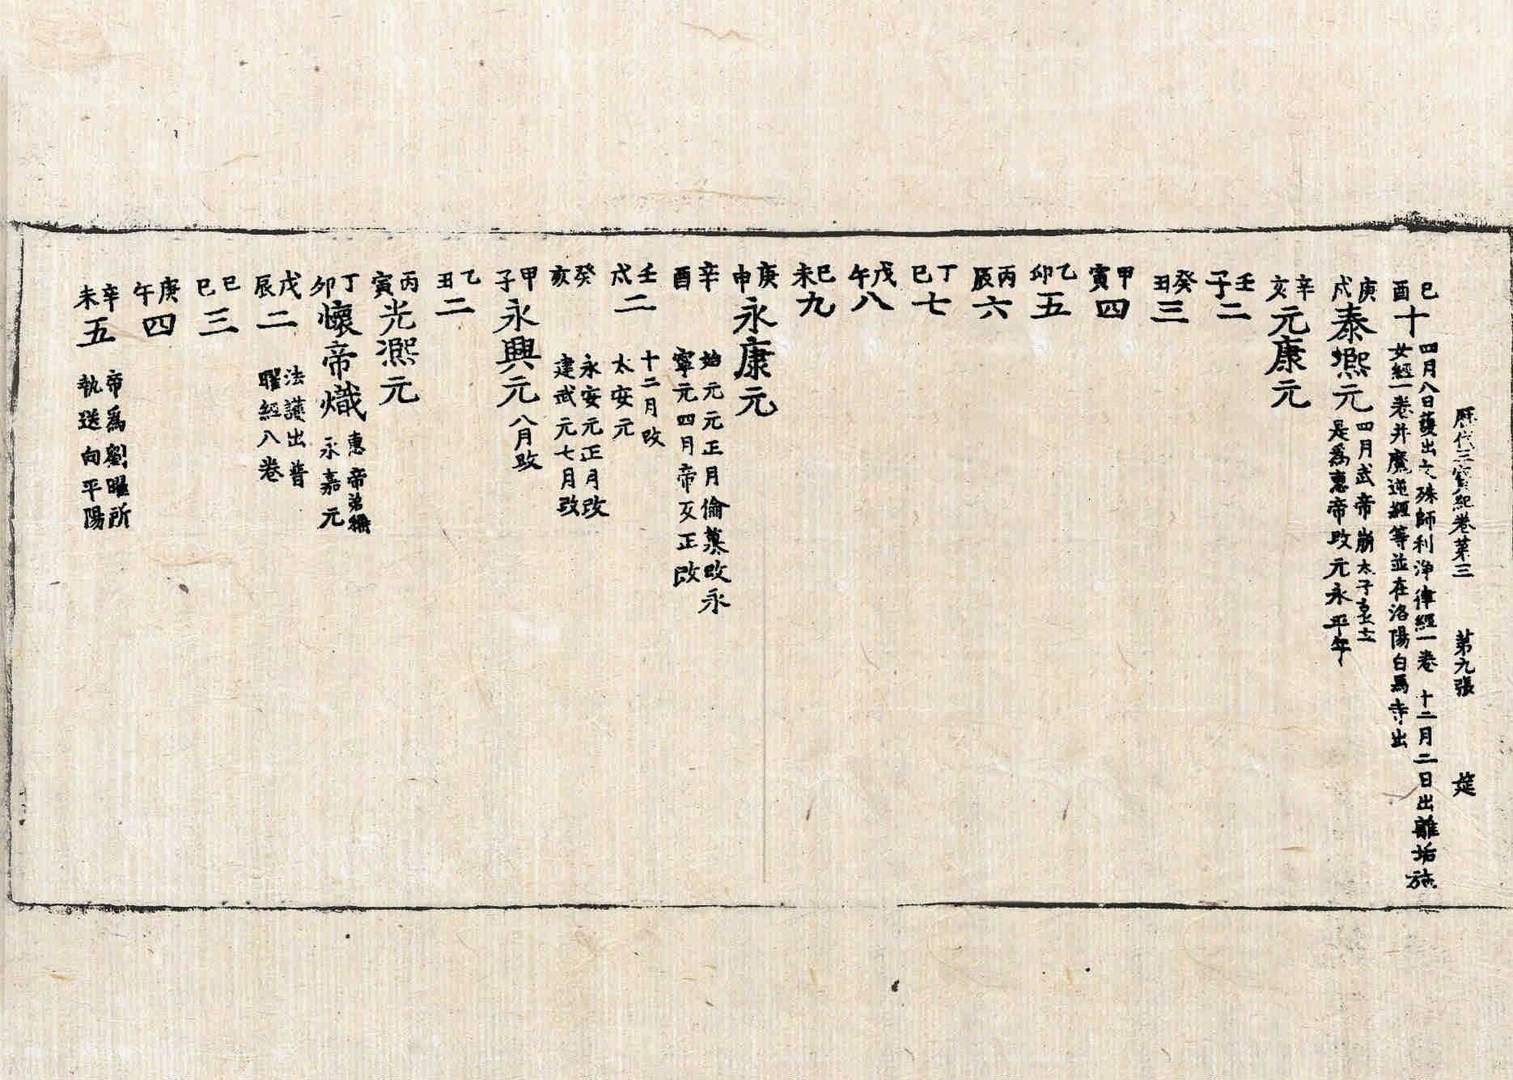 歷代三寶紀卷第三 第九張 莚
己酉 十 四月八日護出文殊師利淨律經一卷 十二月二日出離垢施
女經一卷并魔逆經等並在洛陽白馬寺出
庚戌 泰熈元 四月武帝崩太子立
是爲惠帝改元永平年
辛亥 元康元
壬子 二
癸丑 三
甲寅 四
乙卯 五
丙辰 六
丁巳 七
戊午 八
己未 九
庚申 永康元
辛酉 始元元正月倫篡改永
寧元四月帝反正改
壬戌 二 十二月改
太安元
癸亥 永安元正月改
建武元七月改
甲子 永興元 八月改
乙丑 二
丙寅 光熈元
丁卯 懷帝熾 惠帝弟稱
永嘉元
戊辰 二 法護出普
曜經八卷
己巳 三
庚午 四
辛未 五 帝爲劉曜所
執送向平陽